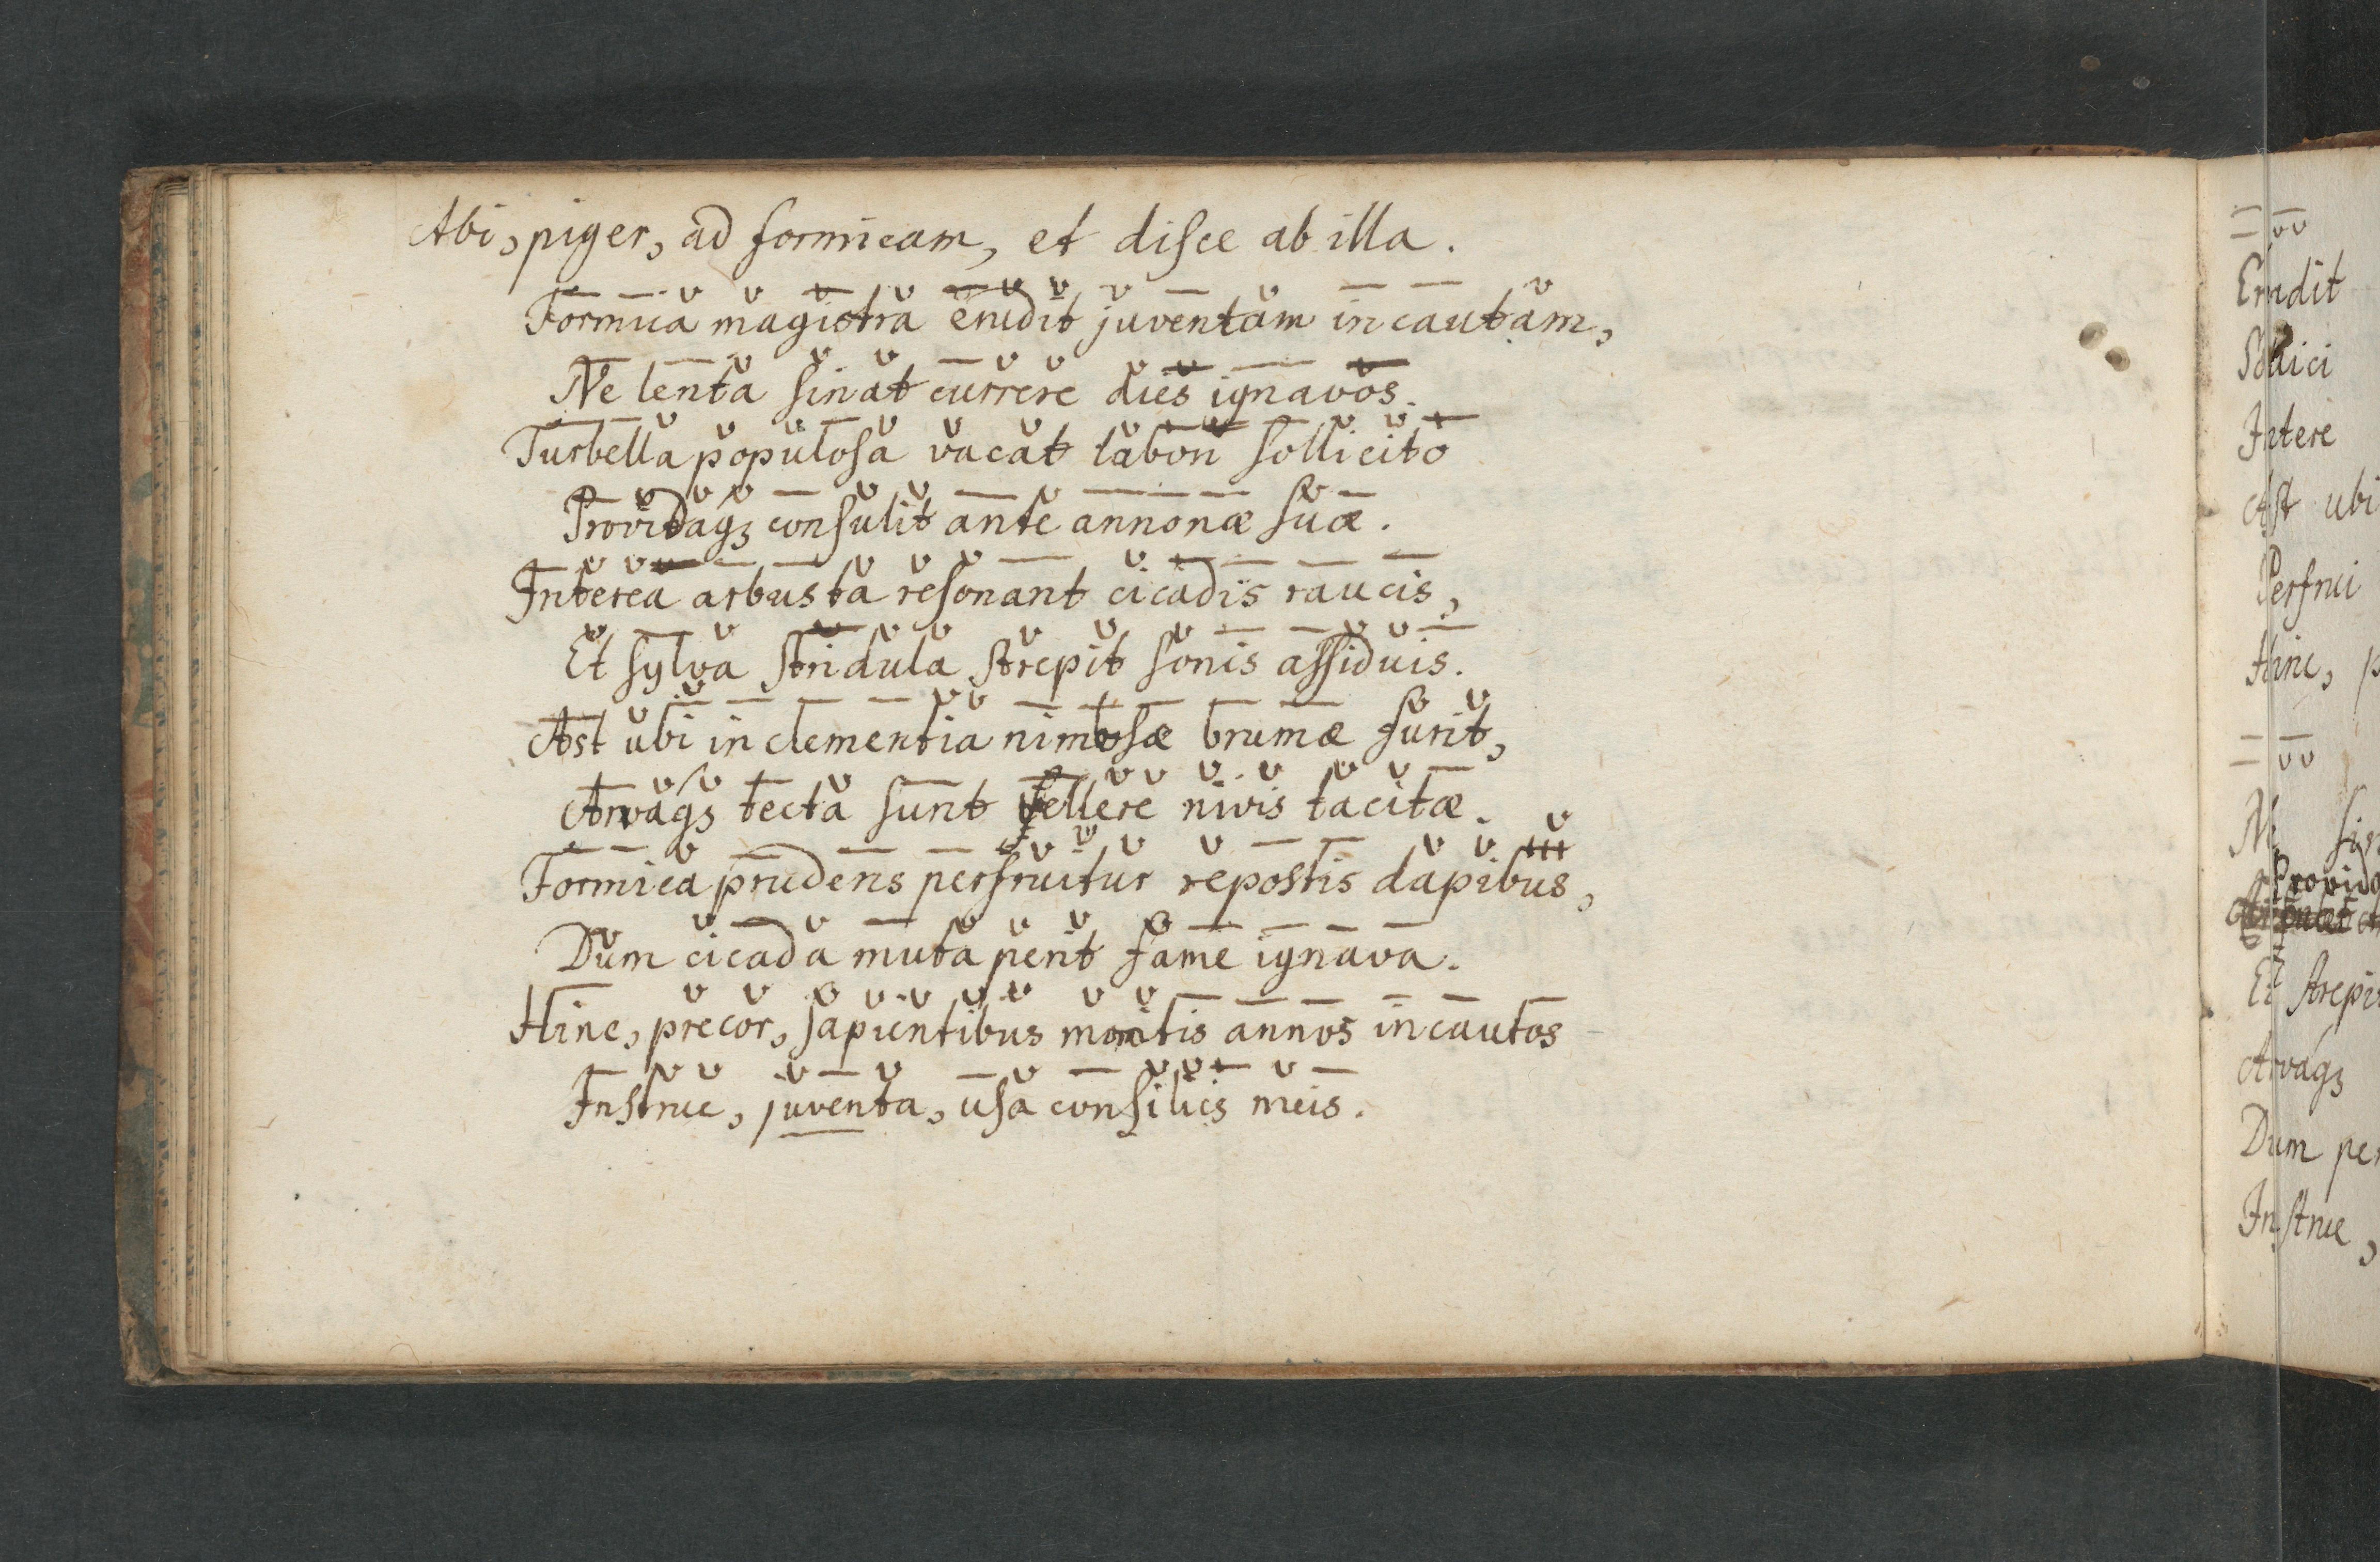 Abi, piger, ad formicam, et disce ab illa.
Formica magistra erudit juventam incautam,
Ne lenta sinat currere dies ignavos.
Turbella populosa vacat labori sollicito
Providaqꝫ consulit ante annonæ suæ.
Interea arbusta resonant cicadis raucis,
Et sylva stridula strepit sonis assiduis.
Ast ubi inclementia nimbosæ brumæ furit,
Arvaqꝫ tecta sunt vellere nivis tacitæ.
Formica prudens perfruitur repostis dapibus,
Dum cicada muta perit fame ignava.
Hinc, precor, sapientibus monitis annos incautos
Instrue, juventa, usa consiliis meis.
Erudit
Intere
Ast ubi
Perfrui
Hinc, p
Provida
Et strepit
Arvaqꝫ
Dum per
Instrue,